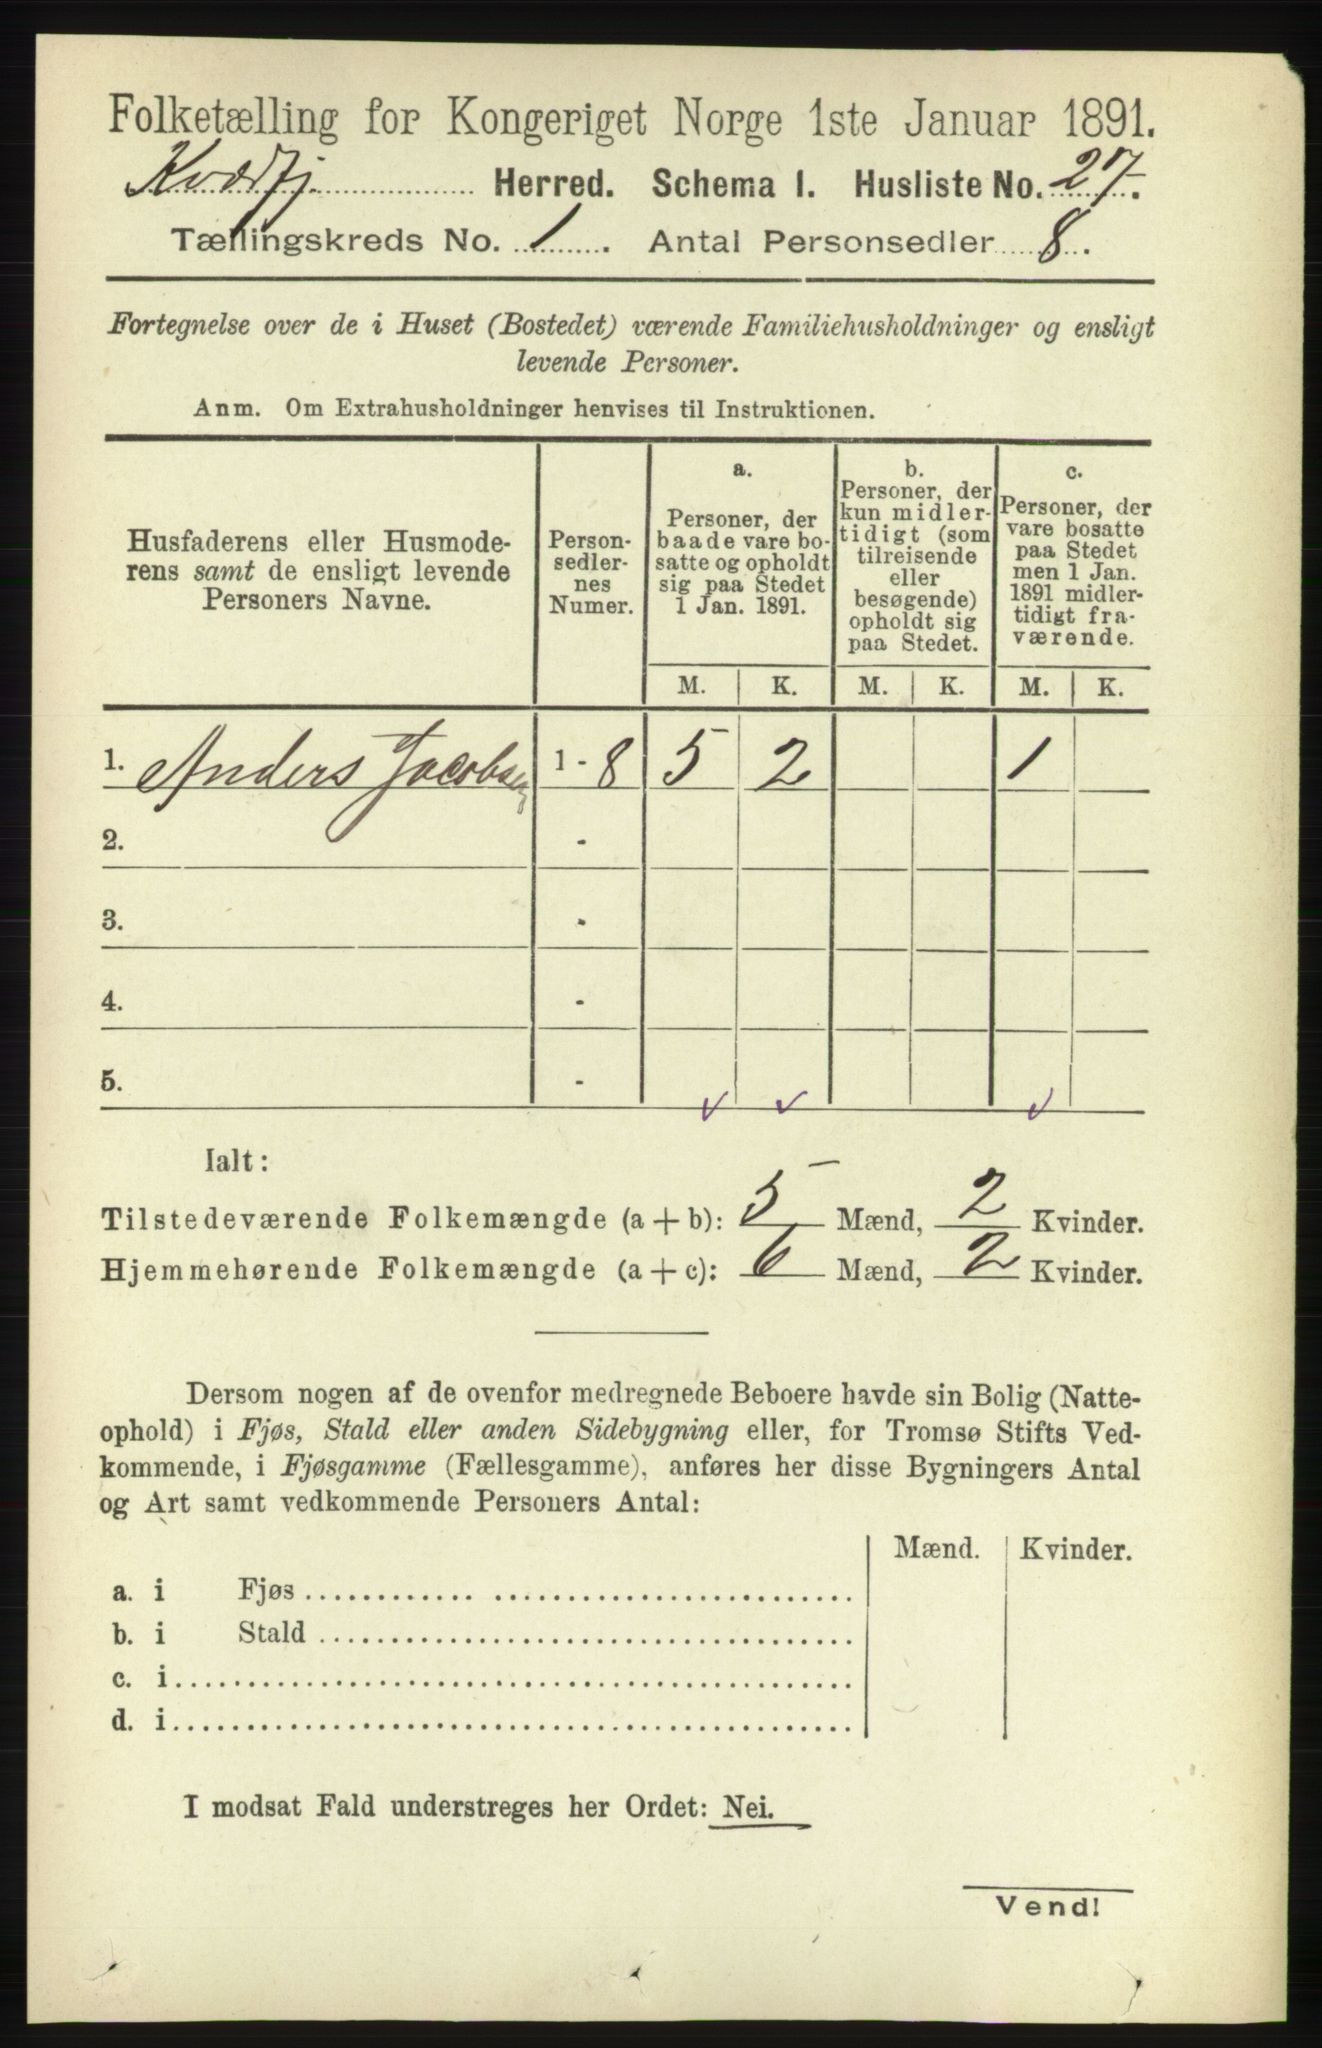 Folketælling for Kongeriget Norge 1ste Januar 1891.
Kvædfj. Herred. Schema I. Husliste No. 27.
Tællingskreds No. 1. Antal Personsedler 8.
Fortegnelse over de i Huset (Bostedet) værende Familiehusholdninger og ensligt
levende Personer.
Anm. Om Extrahusholdninger henvises til Instruktionen.
Husfaderens eller Husmode-
rens samt de ensligt levende
Personers Navne.
Person-
sedler-
nes
Numer.
a.
Personer, der
baade vare bo-
satte og opholdt
sig paa Stedet
1 Jan. 1891.
b.
Personer, der
kun midler-
tidigt (som
tilreisende
eller
besøgende)
opholdt sig
paa Stedet.
c.
Personer, der
vare bosatte
paa Stedet
men 1 Jan.
1891 midler-
tidigt fra-
værende.
M. K. M. K. M. K.
1. Anders Jacobsen 1 - 8 5 2 1
2. -
3. -
4. -
5. -
Ialt:
Tilstedeværende Folkemængde (a + b): 5 Mænd, 2 Kvinder.
Hjemmehørende Folkemængde (a + c): 6 Mænd, 2 Kvinder.
Dersom nogen af de ovenfor medregnede Beboere havde sin Bolig (Natte-
ophold) i Fjøs, Stald eller anden Sidebygning eller, for Tromsø Stifts Ved-
kommende, i Fjøsgamme (Fællesgamme), anføres her disse Bygningers Antal
og Art samt vedkommende Personers Antal:
Mænd. Kvinder.
a. i Fjøs
b. i Stald
c. i
d. i
I modsat Fald understreges her Ordet: Nei.
Vend!